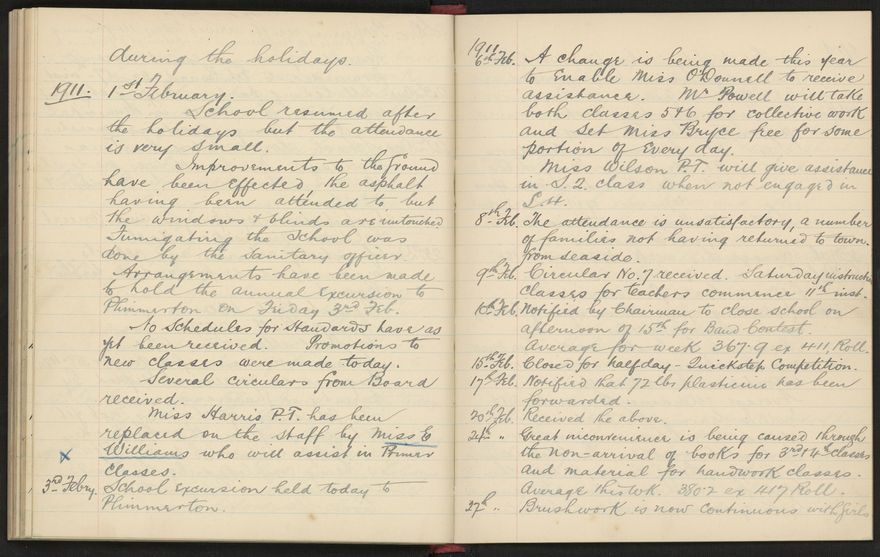 during the holidays.
1911. 1st February.
School resumed after
the holidays but the attendance
is very small.
Improvements to the ground
have been effected, the asphalt
having been attended to but
the windows & blinds are untouched
Fumigating the School was
done by the Sanitary officer
Arrangements have been made
to hold the annual Excursion to
Plimmerton on Friday 3rd Feb.
No Schedules for Standards have as
yet been received. Promotions to
new classes were made today.
Several circulars from Board
received.
Miss Harris P.T. has been
replaced on the staff by Miss E
x Williams who will assist in Primer
Classes.
3rd Febry. School Excursion held today to
Plimmerton.
1911
6th Feb. A change is being made this year
to Enable Miss O'Donnell to receive
assistance. Mr Powell will take
both classes 5 & 6 for collective work
and set Miss Bryce free for some
portion of Every day.
Miss Wilson P.T. will give assistance
in S.2. class when not engaged in
S.4.
8th Feb. The attendance is unsatisfactory, a number
of families not having returned to town
from seaside.
9th Feb. Circular No. 7 received. Saturday
classes for teachers commence 11th inst.
10th Feb. Notified by Chairman to close school on
afternoon of 15th for Band Contest.
Average for week 367.9 ex 411 Roll.
15th Feb. Closed for half day - Quickstep Competition.
17th Feb. Notified that 72 lbs plasticine has been
forwarded.
20th Feb. Received the above.
24th " Great inconvenience is being caused through
the non-arrival of books for 3rd & 4th classes
and material for handwork classes.
Average this wk. 380.2 ex 417 Roll.
27th " Brushwork is now continuous with girls